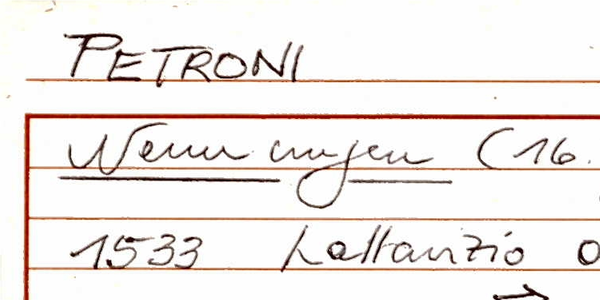 PETRONI
Nennungen (16.
1533 Lattanzio